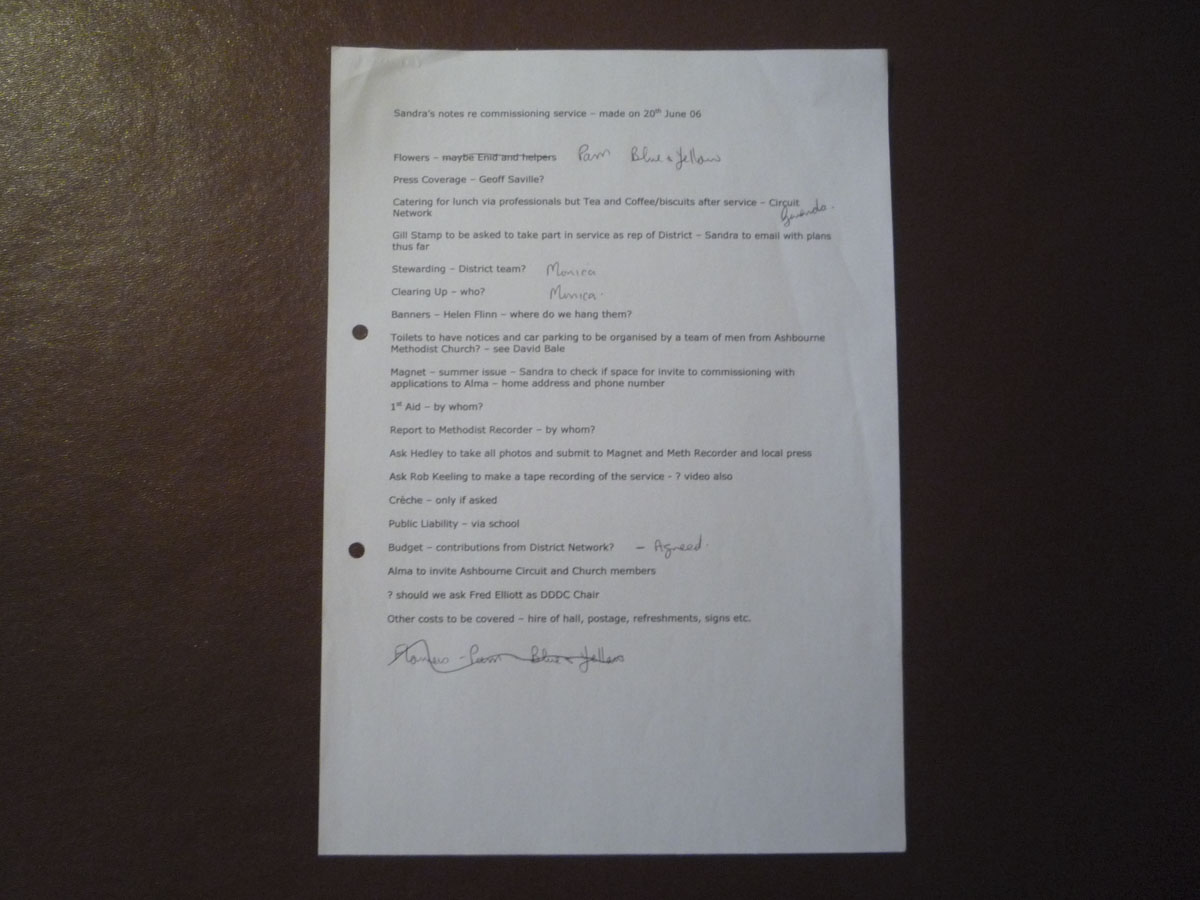 Sandra's notes re commissioning service – made on 20th June 06
Flowers – maybe Enid and helpers Pam Blue & Yellow
Press Coverage – Geoff Saville?
Catering for lunch via professionals but Tea and Coffee/biscuits after service – Circuit
Network
Gill Stamp to be asked to take part in service as rep of District – Sandra to email with plans
thus far
Stewarding – District team? Monica
Clearing Up – who? Monica.
Banners – Helen Flinn – where do we hang them?
Toilets to have notices and car parking to be organised by a team of men from Ashbourne
Methodist Church? – see David Bale
Magnet – summer issue – Sandra to check if space for invite to commissioning with
applications to Alma – home address and phone number
1st Aid – by whom?
Report to Methodist Recorder – by whom?
Ask Hedley to take all photos and submit to Magnet and Meth Recorder and local press
Ask Rob Keeling to make a tape recording of the service - ? video also
Crèche – only if asked
Public Liability – via school
Budget – contributions from District Network? – Agreed.
Alma to invite Ashbourne Circuit and Church members
? should we ask Fred Elliott as DDDC Chair
Other costs to be covered – hire of hall, postage, refreshments, signs etc.
Flowers - Pam Blue & Yellow